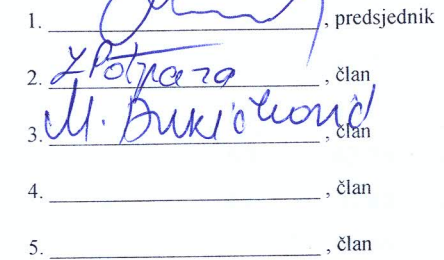 1. , predsjednik
2. Z Potpara , član
3. M. , član
4. , član
5. , član